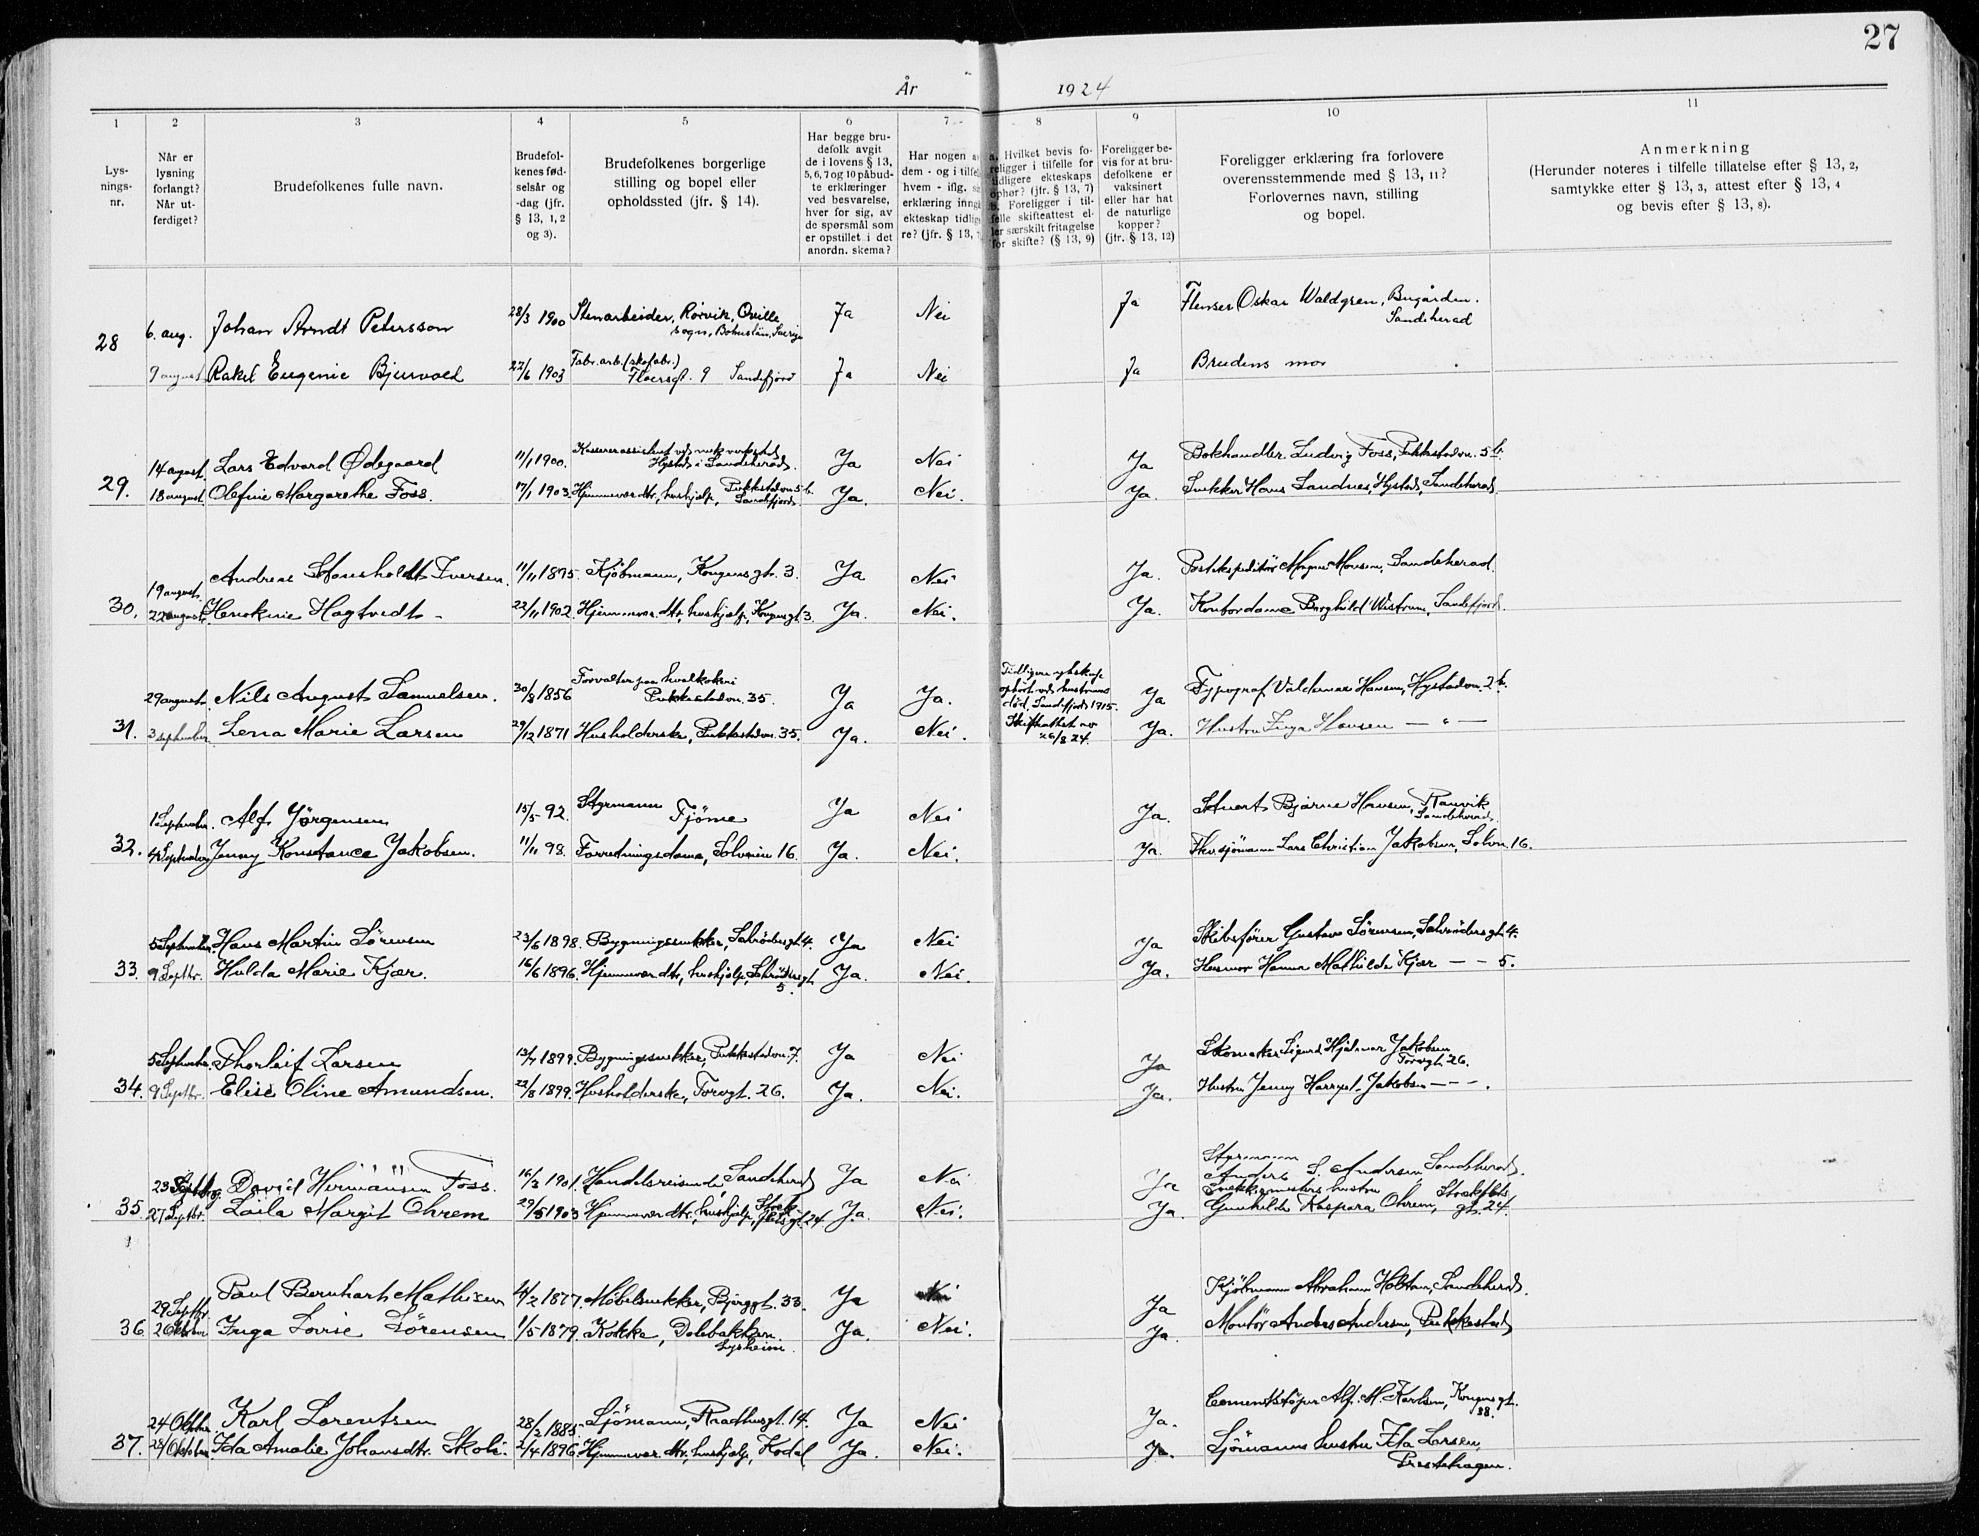 27
År 1924
1 2 3 4 5 6 7 8 9 10 11
Lys-
nings-
nr.
Når er
lysning
forlangt?
Når ut-
ferdiget?
Brudefolkenes fulle navn.
Brudefol-
kenes fød-
selsår og
-dag (jfr.
§ 13, 1, 2
og 3).
Brudefolkenes borgerlige
stilling og bopel eller
opholdssted (jfr. § 14).
Har begge bru-
defolk avgit
de i lovens § 13,
5, 6, 7 og 10 påbud-
te erklæringer
ved besvarelse,
hver for sig, av
de spørsmål som
er opstillet i det
anordn. skema?
Har nogen a
dem - og i tilfe
hvem - iflg. s
erklæring inng
ekteskap tidlig
re? (jfr. § 13,
a. Hvilket bevis fo-
religger i tilfelle for
tidligere ekteskaps
ophør? (jfr. § 13, 7)
b. Foreligger i til-
felle skifteattest el-
ler særskilt fritagelse
for skifte? (§ 13, 9)
Foreligger be-
vis for at bru-
defolkene er
vaksinert
eller har hat
de naturlige
kopper?
(jfr. § 13, 12)
Foreligger erklæring fra forlovere
overensstemmende med § 13, 11?
Forlovernes navn, stilling
og bopel.
Anmerkning
(Herunder noteres i tilfelle tillatelse efter § 13, 2,
samtykke efter § 13, 3, attest efter § 13, 4
og bevis efter § 13, 8).
28 6. aug. Johan Arndt Petersson 28/3 1900 Stenarbeider, Rörvik, Qville Ja Nei Ja Flenser Oskar Waldgren, Bugården.
sogn, Bohuslän, Sverige Sandeherad
9 august Rakel Eugenie Bjurvoed 22/6 1903 Fabr. arb. (skofabr.) Ja Nei Ja Brudens mor
9 Sandefjord
29. 14 august Lars Edvard Ødegaard 11/1 1900. Kassererassistent ved mek verksted Ja Nei Ja Bokhandler Ludvig Foss, Pukkestadvn. 5 b.
Hystad i Sandeherad.
18 august Olefine Margarethe Foss. 17/1 1903. Hjemmevær. dtr, hushjelp, Pukkestadvn 5 b. Ja. Nei. Ja Snekker Hans Sandnes, Hystad, Sandeherad
Sandefjord
30. 19 august Andreas Stousholdt Iversen. 11/11 1895. Kjöbmann, Kongensgt. 3. Ja Nei Ja. Postekspeditör Monsen, Sandeherad.
22 august. Henokine Hagtvedt 22/11 1902. Hjemmevær. dtr, hushjelp, Kongensgt 3. Ja. Nei. Ja. Kontordame Borghild Wistrum, Sandefjord.
31. 29 august Nils August Samuelsen. 30/8 1856 Forvalter paa hvalkokeri Ja Ja. Tidligere egteskap Ja Typograf Valdemar Hansen, Hystadvn. 2 b.
Pukkestadvn. 35. ophört ved hustruens
död, Sandefjord 1915.
3 september Lena Marie Larsen 29/12 1871 Husholderske, Pukkestadvn. 35. Ja. Nei. Skifteattest av Ja. Hustru Inga Hansen — " —
26/8 24.
32. 1. September. Alf Jörgensen 15/5 92. Styrmann Ja Nei Ja. Stuert Bjarne Hansen, Ranvik
Tjöme Sandeherad
4 September Jenny Konstance Jakobsen. 11/11 98. Forretningsdame, Solveien 16. Ja. Nei. Ja. Lars Christian Jakobsen, Solvn. 16.
33. 5 September Hans Martin Sörensen 23/6 1898. Bygningssnekker, gt. 4. Ja Nei Ja Skibsförer Gustav Sörensen, gt. 4.
9 Septbr. Hulda Marie Kjær. 16/6 1896. Hjemmevær dtr, hushjelp, gt Ja. Nei. Ja. Husmor Hanna Mathilde Kjær — — 5.
5.
34. 5 September. Thorleif Larsen 13/7 1899. Bygningssnekker, Pukkestadvn. 7. Ja Nei Ja Skomaker Sigurd Hjalmar Jakobsen
Torvgt. 26.
9 Septbr. Elise Oline Amundsen. 22/8 1899. Husholderske, Torvgt. 26. Ja. Nei. Ja. Hustru Jenny Jakobsen — — .
35. 23 David Hermansen Foss. 16/2 1901. Handelsreisende Sandeherad Ja Nei Ja Styrmann
Anders S. Andersen, Sandeherad.
27 Septbr. Laila Margit Ohrem 29/5 1903 Hjemmevær dtr, hushjelp, gt. 24 Ja. Nei. Ja. hustru
Gunhilda Kaspara Ohrem, gt. 24.
36 29 Septbr Paul Bernhard Mathisen 14/2 1877. Möbelsnekker, Bjerggt. 33. Ja Nei Ja Kjöbmann Abraham Holtan, Sandeherad.
2 Oktober Inga Lovise Sörensen 1/5 1879. Kokke, Dolebakken Ja. Nei. Ja. Montör Anders Andersen, Pukkestad
Lysheim.
37. 24 Oktober Karl Lorentsen 28/2 1885. Sjömann, Raadhusgt. 14. Ja Nei Ja. Cementstöper Alf. M. Karlsen, Kongensgt.
38.
28/ Oktober. Ida Amalie Johansdtr. Skoli. 2/4 1896 Hjemmevær. dtr, hushjelp, Kodal Ja. Nei. Ja. Sjömanns hustru Ida Larsen,
Prestehagen.